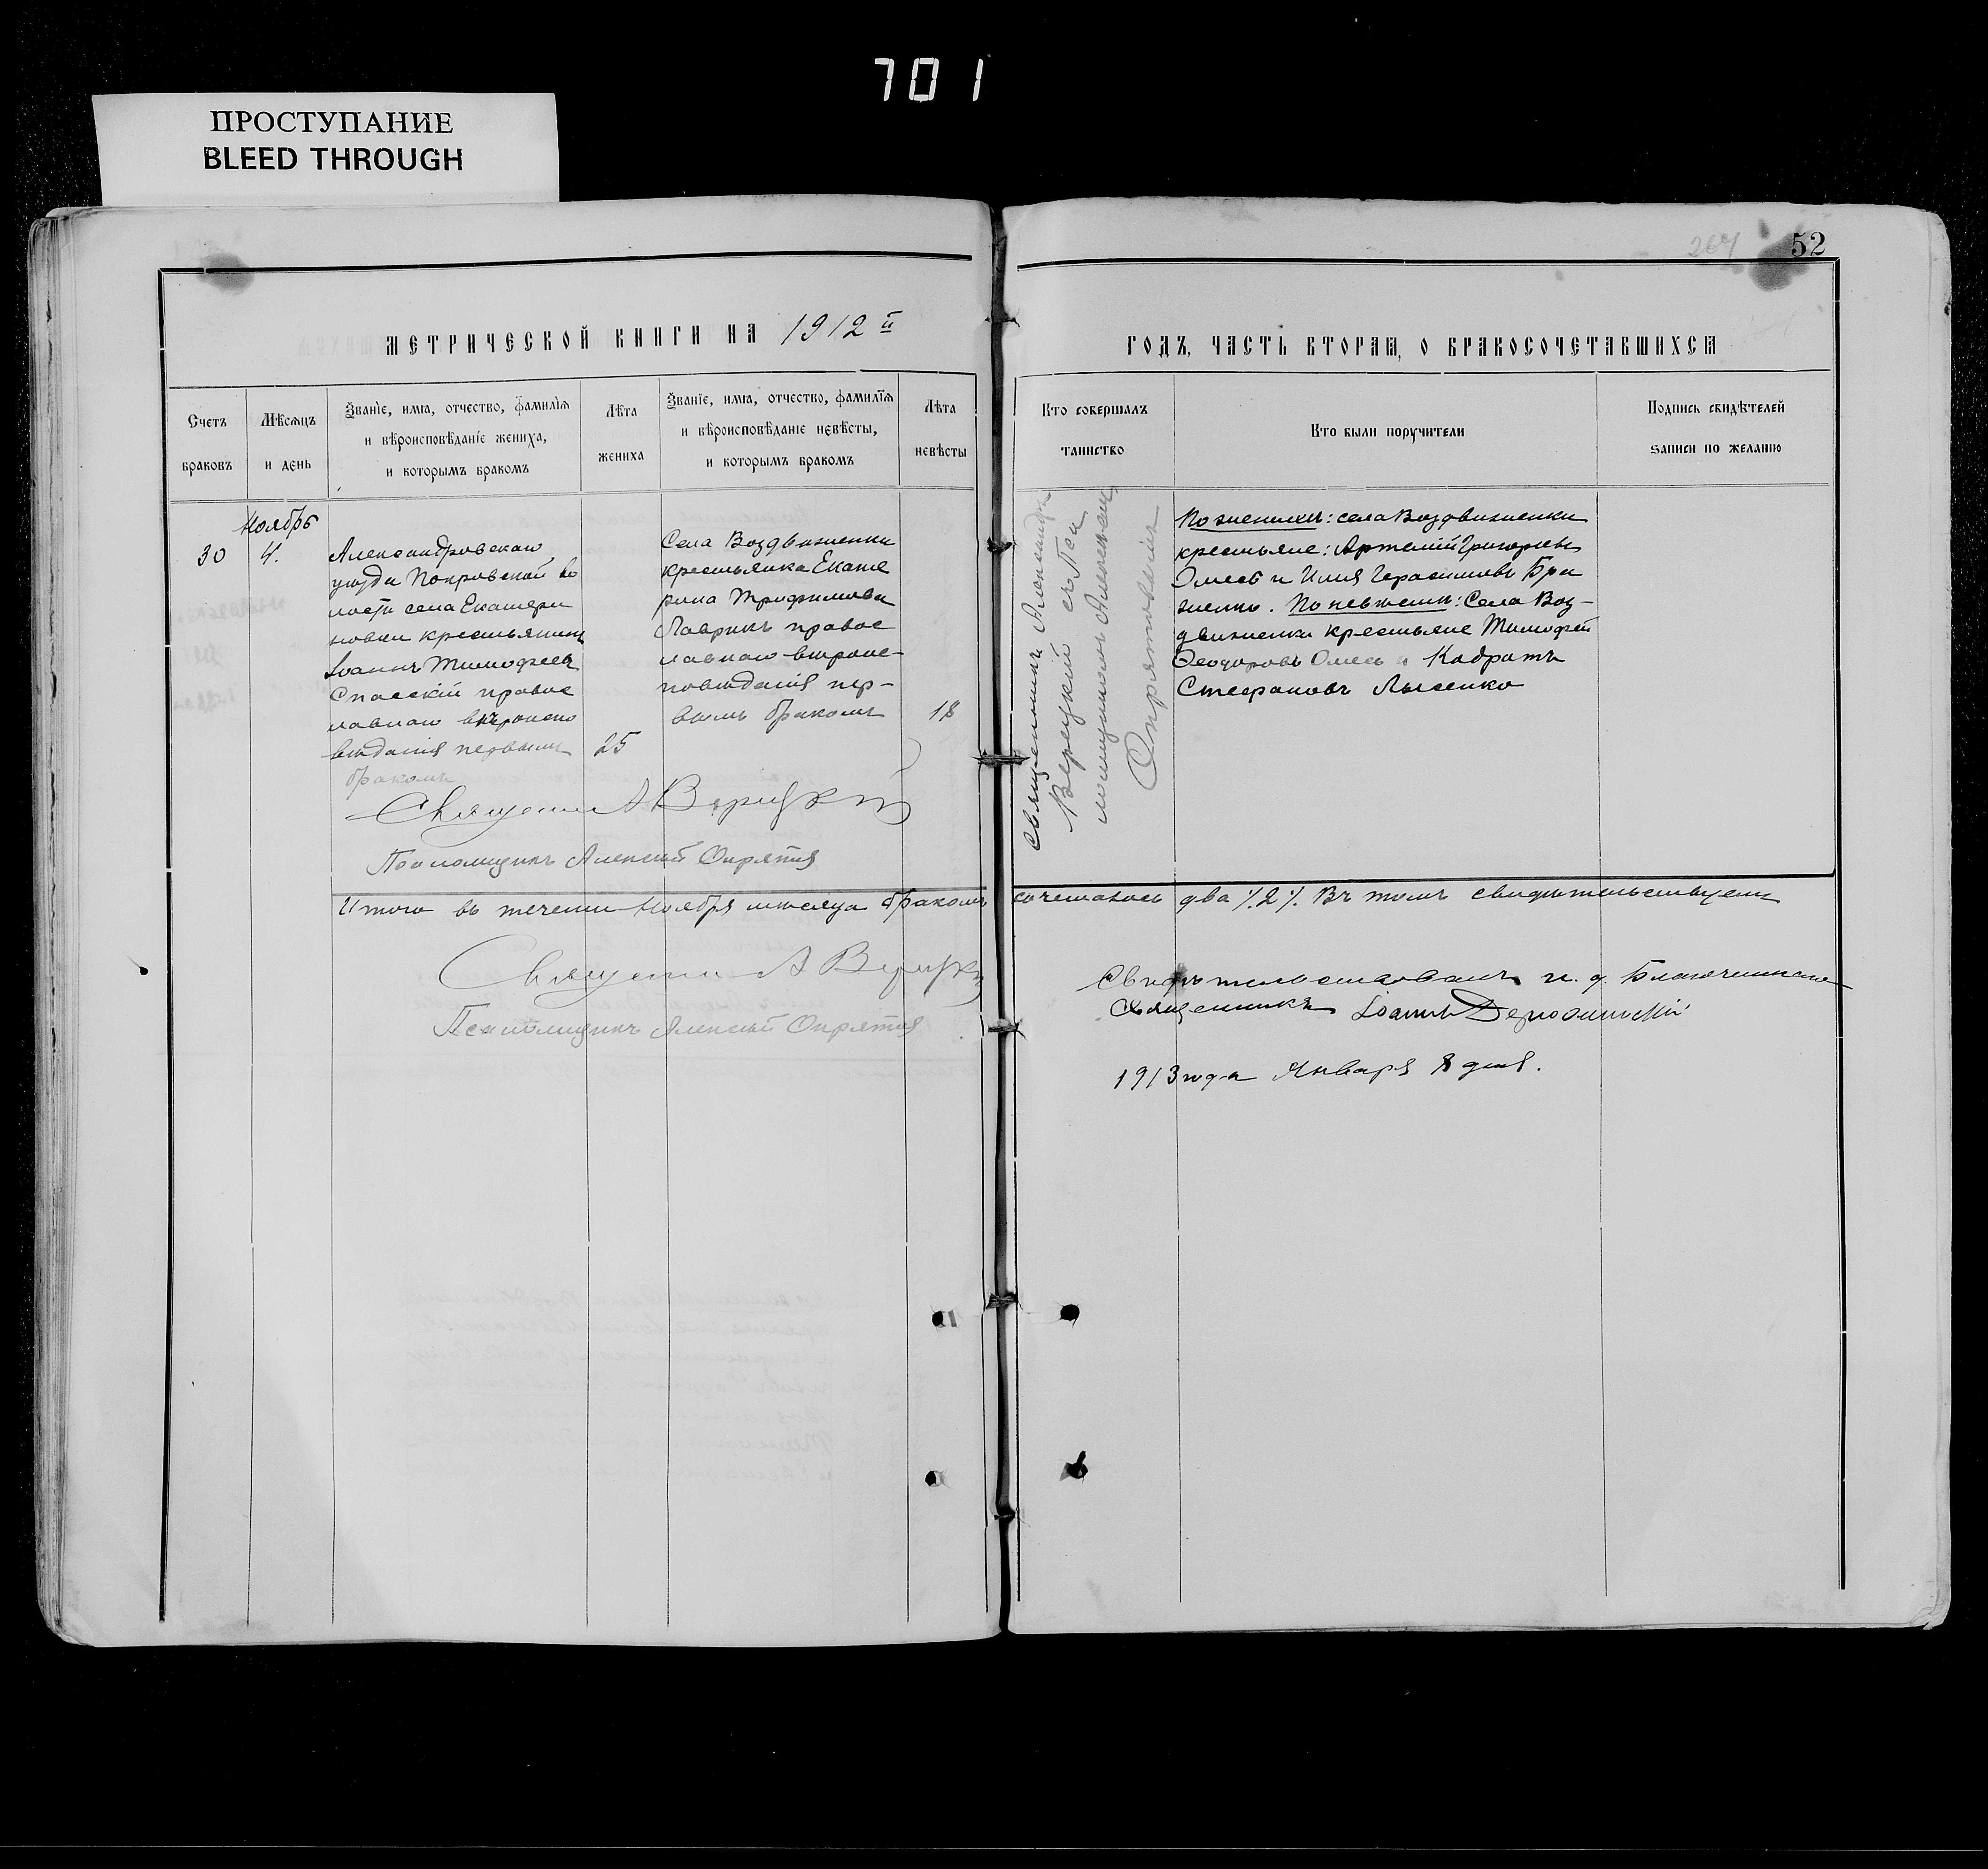 701
ПРОСТУПАНИЕ
BLEED THROUGH
264
52
МЕТРИЧЕСКОЙ КНИГИ НА 1912 й
ГОДЪ, ЧАСТЬ ВТОРАЯ, О БРАКОСОЧЕТАВШИХСЯ
Счетъ
браковъ
Мѣсяцъ
и день
Званіе, имя, отчество, фамилія
и вѣроисповѣданіе жениха,
и которымъ бракомъ
Лѣта
жениха
Званіе, имя, отчество, фамилія
и вѣроисповѣданіе невѣсты,
и которымъ бракомъ
Лѣта
невѣсты
Кто совершалъ
таинство
Кто были поручители
Подпись свидѣтелей
записи по желанію
30
Ноябрь
4.
Александровскаго
уѣзда Покровской во
лости села Екатери
новки крестьянинъ
Іоаннъ Тимофеевъ
Спасскій правос
лавнаго вѣроиспо
вѣданія первымъ
бракомъ
25
Села Воздвиженки
крестьянка Екате
рина Трифимова
Лаврикъ правос
лавнаго вѣроис-
повѣданія пер-
вымъ бракомъ
18
Священникъ Александръ
Верецкій съ Пса
ломщикомъ Алексѣемъ
Опрятовымъ
По женихѣ: села Воздвиженки
крестьяне: Артемій Григорьевъ
Омесь и Илія Герасимовъ Бри
женко. По невѣстѣ: Села Воз-
движенки крестьяне Тимофей
Ѳеодоровъ Омесь и Кодратъ
Стефановъ Лысенко
Священникъ А Верецкій
Псаломщикъ Алексѣй
Итого въ теченіи Ноября мѣсяца бракомъ сочеталось два ⁒2⁒. Въ томъ свидѣтельствуемъ
Священникъ А Верецкій
Псаломщикъ Алексѣй
Свидѣтельствовалъ и. д. Благочиннаго
Священникъ Іоаннъ
1913 года Января 8 дня.